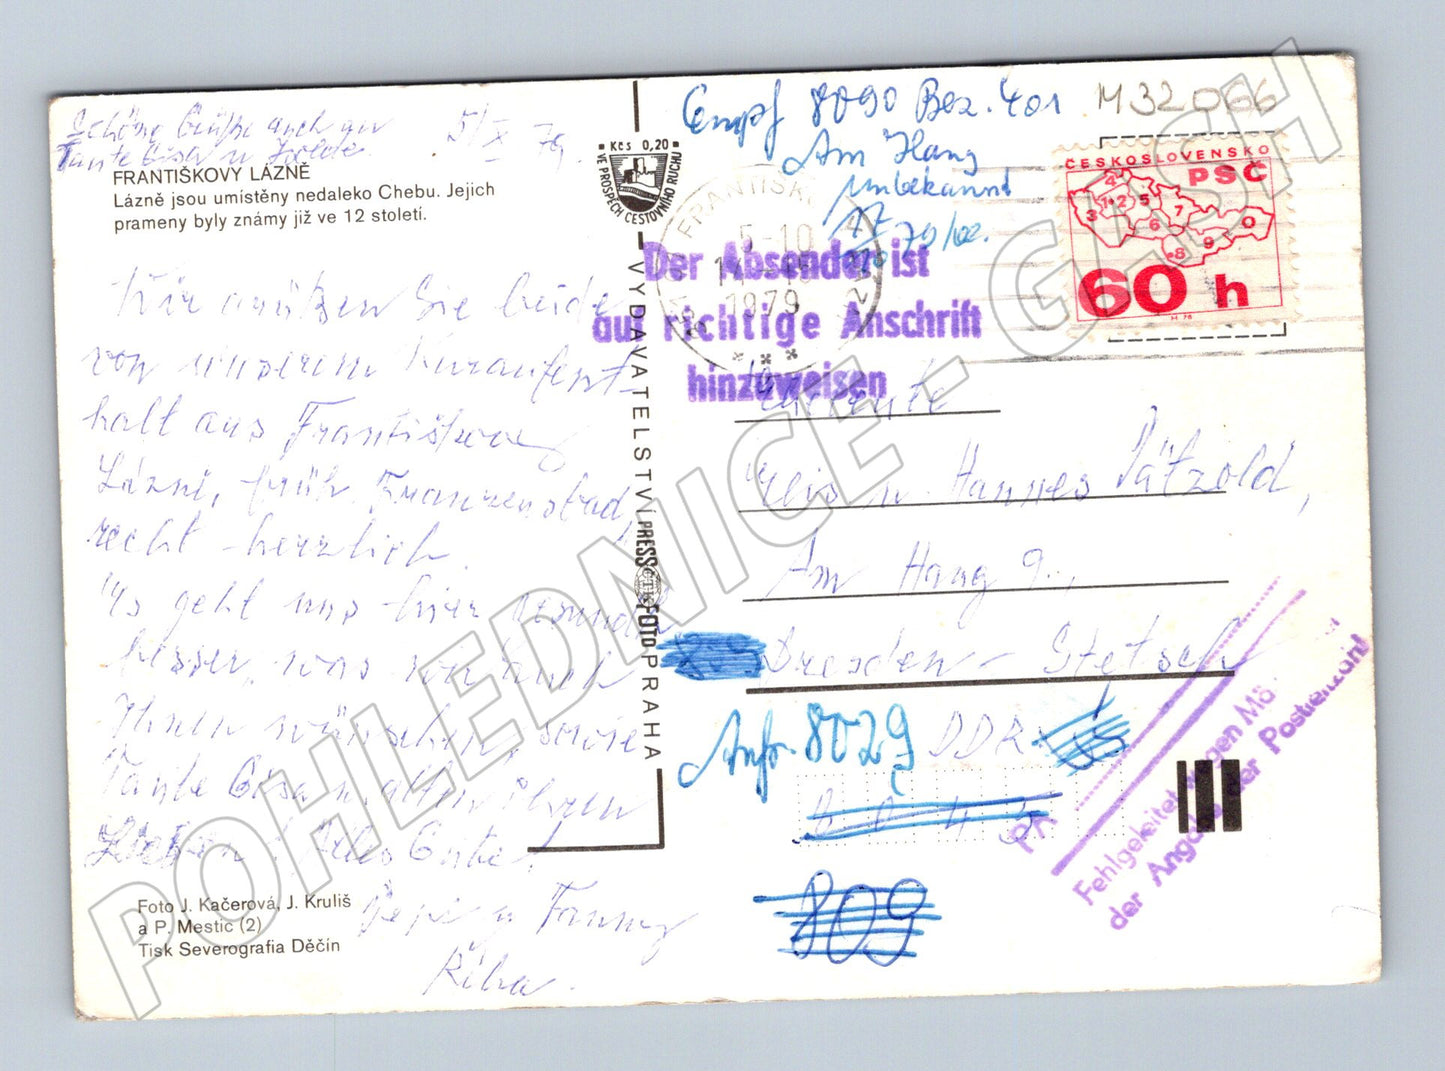 Schöne Grüße auch an
Tante Gisa u
5/X 79.
FRANTIŠKOVY LÁZNĚ
Lázně jsou umístěny nedaleko Chebu. Jejich
prameny byly známy již ve 12 století.
Wir grüßen Sie beide
von unserem Kuraufent-
halt aus Františkovy
Lázně, früh. Franzensbad,
recht herzlich.
Es geht uns hier gesundh.
besser, was wir auch
Ihnen wünschen, sowie
Tante Gisa u. allen ihren
Lieben. Alles Gute!
Pepi u Fanny
Říha.
Foto J. Kačerová, J. Kruliš
a P. Mestic (2)
Tisk Severografia Děčín
Kčs 0,20
VE PROSPĚCH CESTOVNÍHO RUCHU
VYDAVATELSTVÍ PRESSFOTO PRAHA
ČTK
Empf 8090 Bez. 401
Am Hang
unbekannt
M32066
ČESKOSLOVENSKO
PSČ
1 2 3 4 5 6 7 8 9 0
60 h
M 76
FRANTIŠK
5-10
1979
Der Absender ist
auf richtige Anschrift
hinzuweisen
Elis u. Hannes Pätzold,
Am Hang 9.,
Dresden - Stetsch
Anfr. 8029 DDR
809
PA
Fehlgeleitet wegen
der Angabe der Postleitzahl
POHLEDNICE - GASH